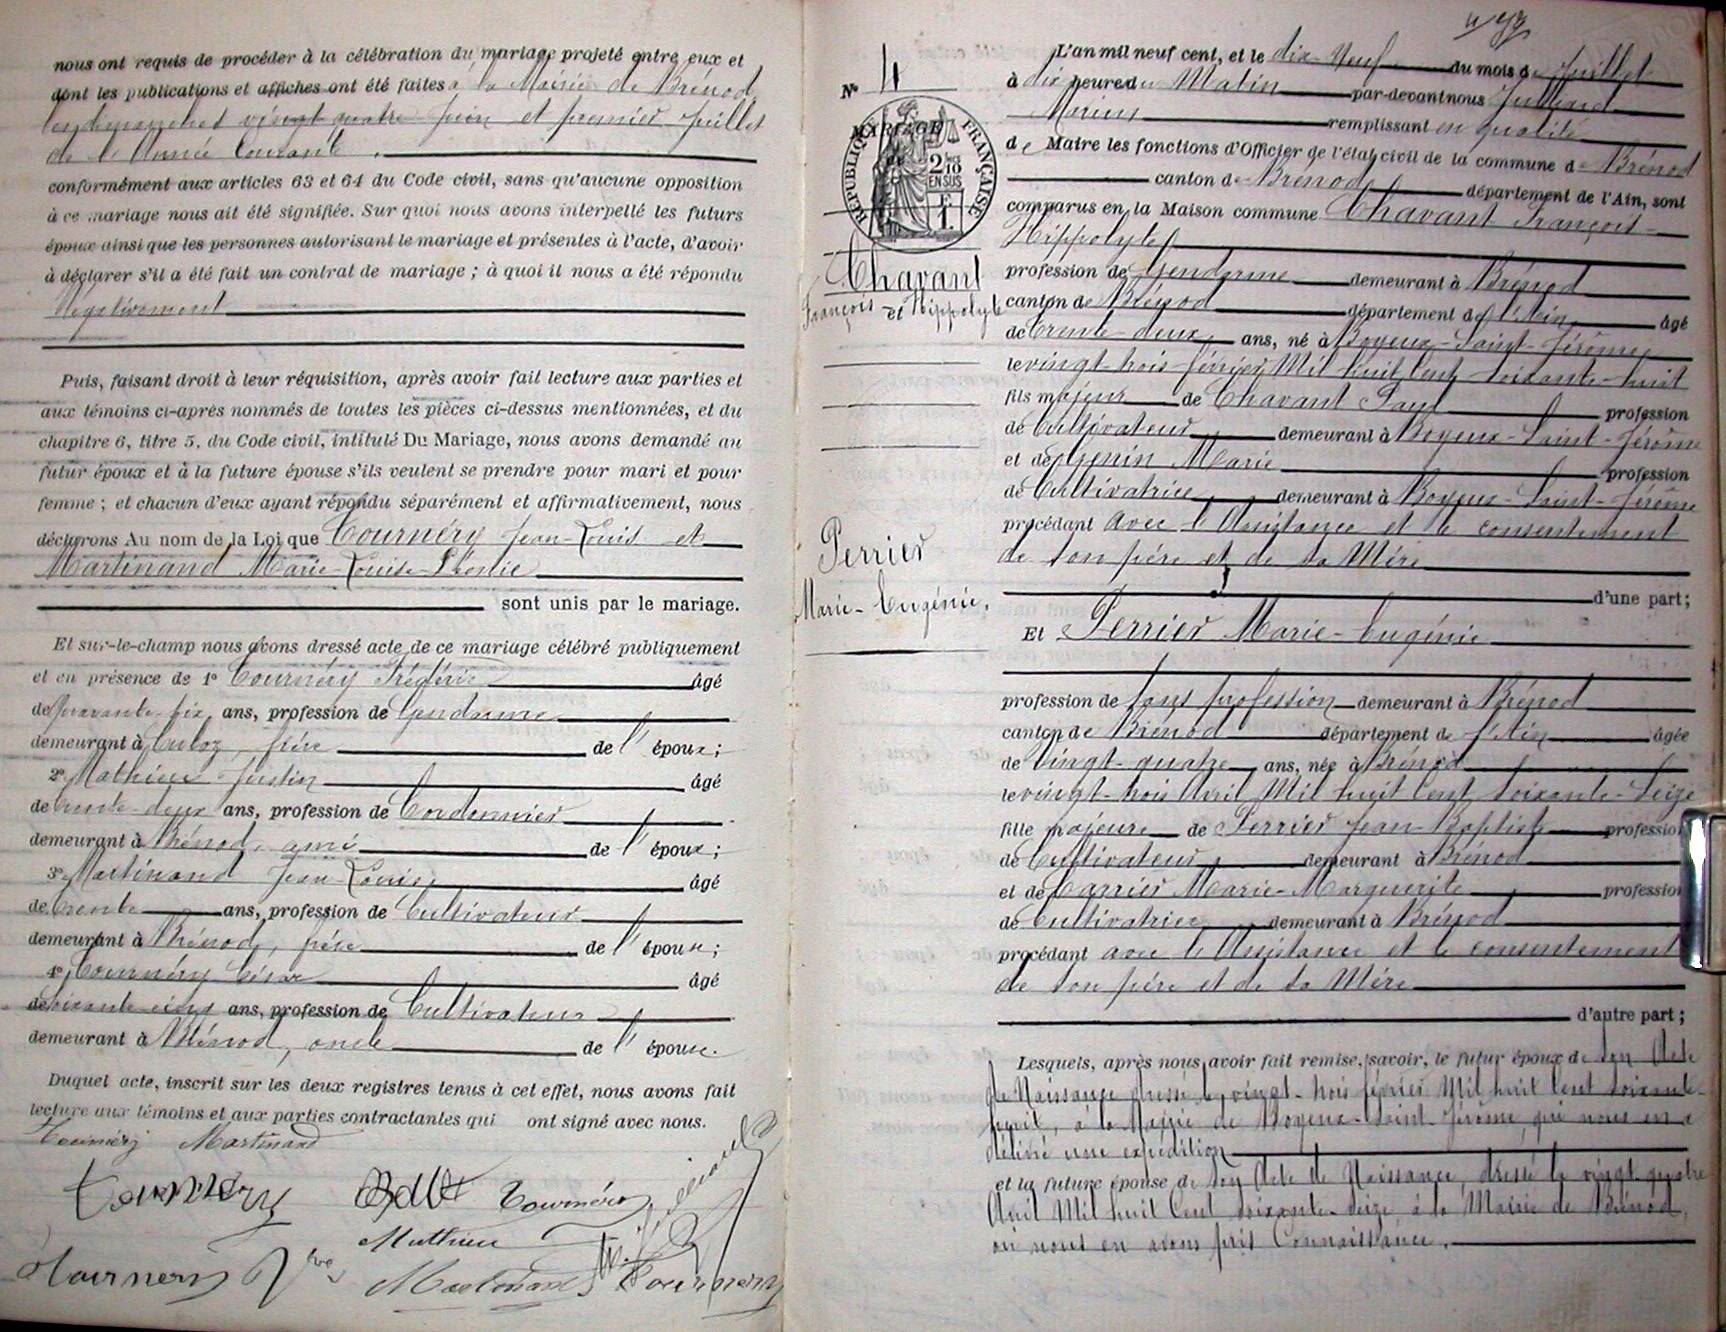 nous ont requis de procéder à la célébration du mariage projeté entre eux et
dont les publications et affiches ont été faites à la Mairie de Brénod
les dimanches vingt quatre Juin et premier Juillet
de l'Année Courante.
conformément aux articles 63 et 64 du Code civil, sans qu'aucune opposition
à ce mariage nous ait été signifiée. Sur quoi nous avons interpellé les futurs
époux ainsi que les personnes autorisant le mariage et présentes à l'acte, d'avoir
à déclarer s'il a été fait un contrat de mariage ; à quoi il nous a été répondu
Négativement
Puis, faisant droit à leur réquisition, après avoir fait lecture aux parties et
aux témoins ci-après nommés de toutes les pièces ci-dessus mentionnées, et du
chapitre 6, titre 5, du Code civil, intitulé Du Mariage, nous avons demandé au
futur époux et à la future épouse s'ils veulent se prendre pour mari et pour
femme ; et chacun d'eux ayant répondu séparément et affirmativement, nous
déclarons Au nom de la Loi que Tournéry Jean-Louis et
Martinand Marie-Louise-Léonie
sont unis par le mariage.
Et sur-le-champ nous avons dressé acte de ce mariage célébré publiquement
et en présence de 1° Tournéry Frédéric âgé
de quarante-six ans, profession de Gendarme
demeurant à Culoz, frère de l'époux ;
2° Mathieu Justin âgé
de trente-deux ans, profession de Cordonnier
demeurant à Brénod, ami de l'époux ;
3° Martinand Jean-Louis âgé
de trente ans, profession de Cultivateur
demeurant à Brénod, frère de l'épouse ;
4° Tournéry César âgé
de soixante cinq ans, profession de Cultivateur
demeurant à Brénod, oncle de l'épouse.
Duquel acte, inscrit sur les deux registres tenus à cet effet, nous avons fait
lecture aux témoins et aux parties contractantes qui ont signé avec nous.
Tournéry Martinand
Tournery Tournéry
Mathieu
Tournery Martinand Tournery
N° 4
MARIAGE
RÉPUBLIQUE FRANÇAISE
2/10 EN SUS
F 1
Chavant
François et Hippolyte
Perrier
Marie-Eugénie.
L'an mil neuf cent, et le dix-Neuf du mois de Juillet
à dix heures du Matin par-devant nous Julliard
Marius remplissant en qualité
de Maire les fonctions d'Officier de l'état civil de la commune de Brénod
canton de Brénod département de l'Ain, sont
comparus en la Maison commune Chavant François-
Hippolyte
profession de Gendarme demeurant à Brénod
canton de Brénod département de l'Ain âgé
de trente-deux ans, né à Boyeux-Saint-Jérôme
le vingt-trois février Mil huit Cent soixante-huit
fils majeur de Chavant Paul profession
de Cultivateur demeurant à Boyeux-Saint-Jérôme
et de Genin Marie profession
de Cultivatrice demeurant à Boyeux-Saint-Jérôme
procédant avec l'Assistance et le consentement
de son père et de sa Mère
d'une part ;
Et Perrier Marie-Eugénie
profession de sans profession demeurant à Brénod
canton de Brénod département de l'Ain âgée
de vingt-quatre ans, née à Brénod
le vingt-trois Avril Mil huit Cent soixante-seize
fille majeure de Perrier Jean-Baptiste profession
de Cultivateur demeurant à Brénod
et de Carrier Marie-Marguerite profession
de Cultivatrice demeurant à Brénod
procédant avec l'Assistance et le consentement
de son père et de sa Mère
d'autre part ;
Lesquels, après nous avoir fait remise, savoir, le futur époux de son Acte
de Naissance dressé le vingt-trois février Mil huit Cent soixante-
huit, à la Mairie de Boyeux-Saint-Jérôme, qui nous en a
délivré une expédition
et la future épouse de son Acte de Naissance, dressé le vingt-quatre
Avril Mil huit Cent soixante-seize à la Mairie de Brénod,
où nous en avons pris Connaissance.